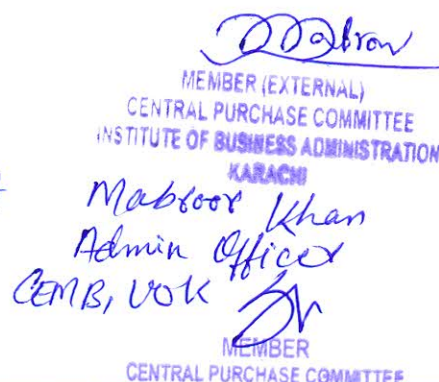 MEMBER (EXTERNAL)
CENTRAL PURCHASE COMMITTEE
INSTITUTE OF BUSINESS ADMINISTRATION
KARACHI
Mabroor Khan
Admin Officer
CEMB, UOK
MEMBER
CENTRAL PURCHASE COMMITTEE